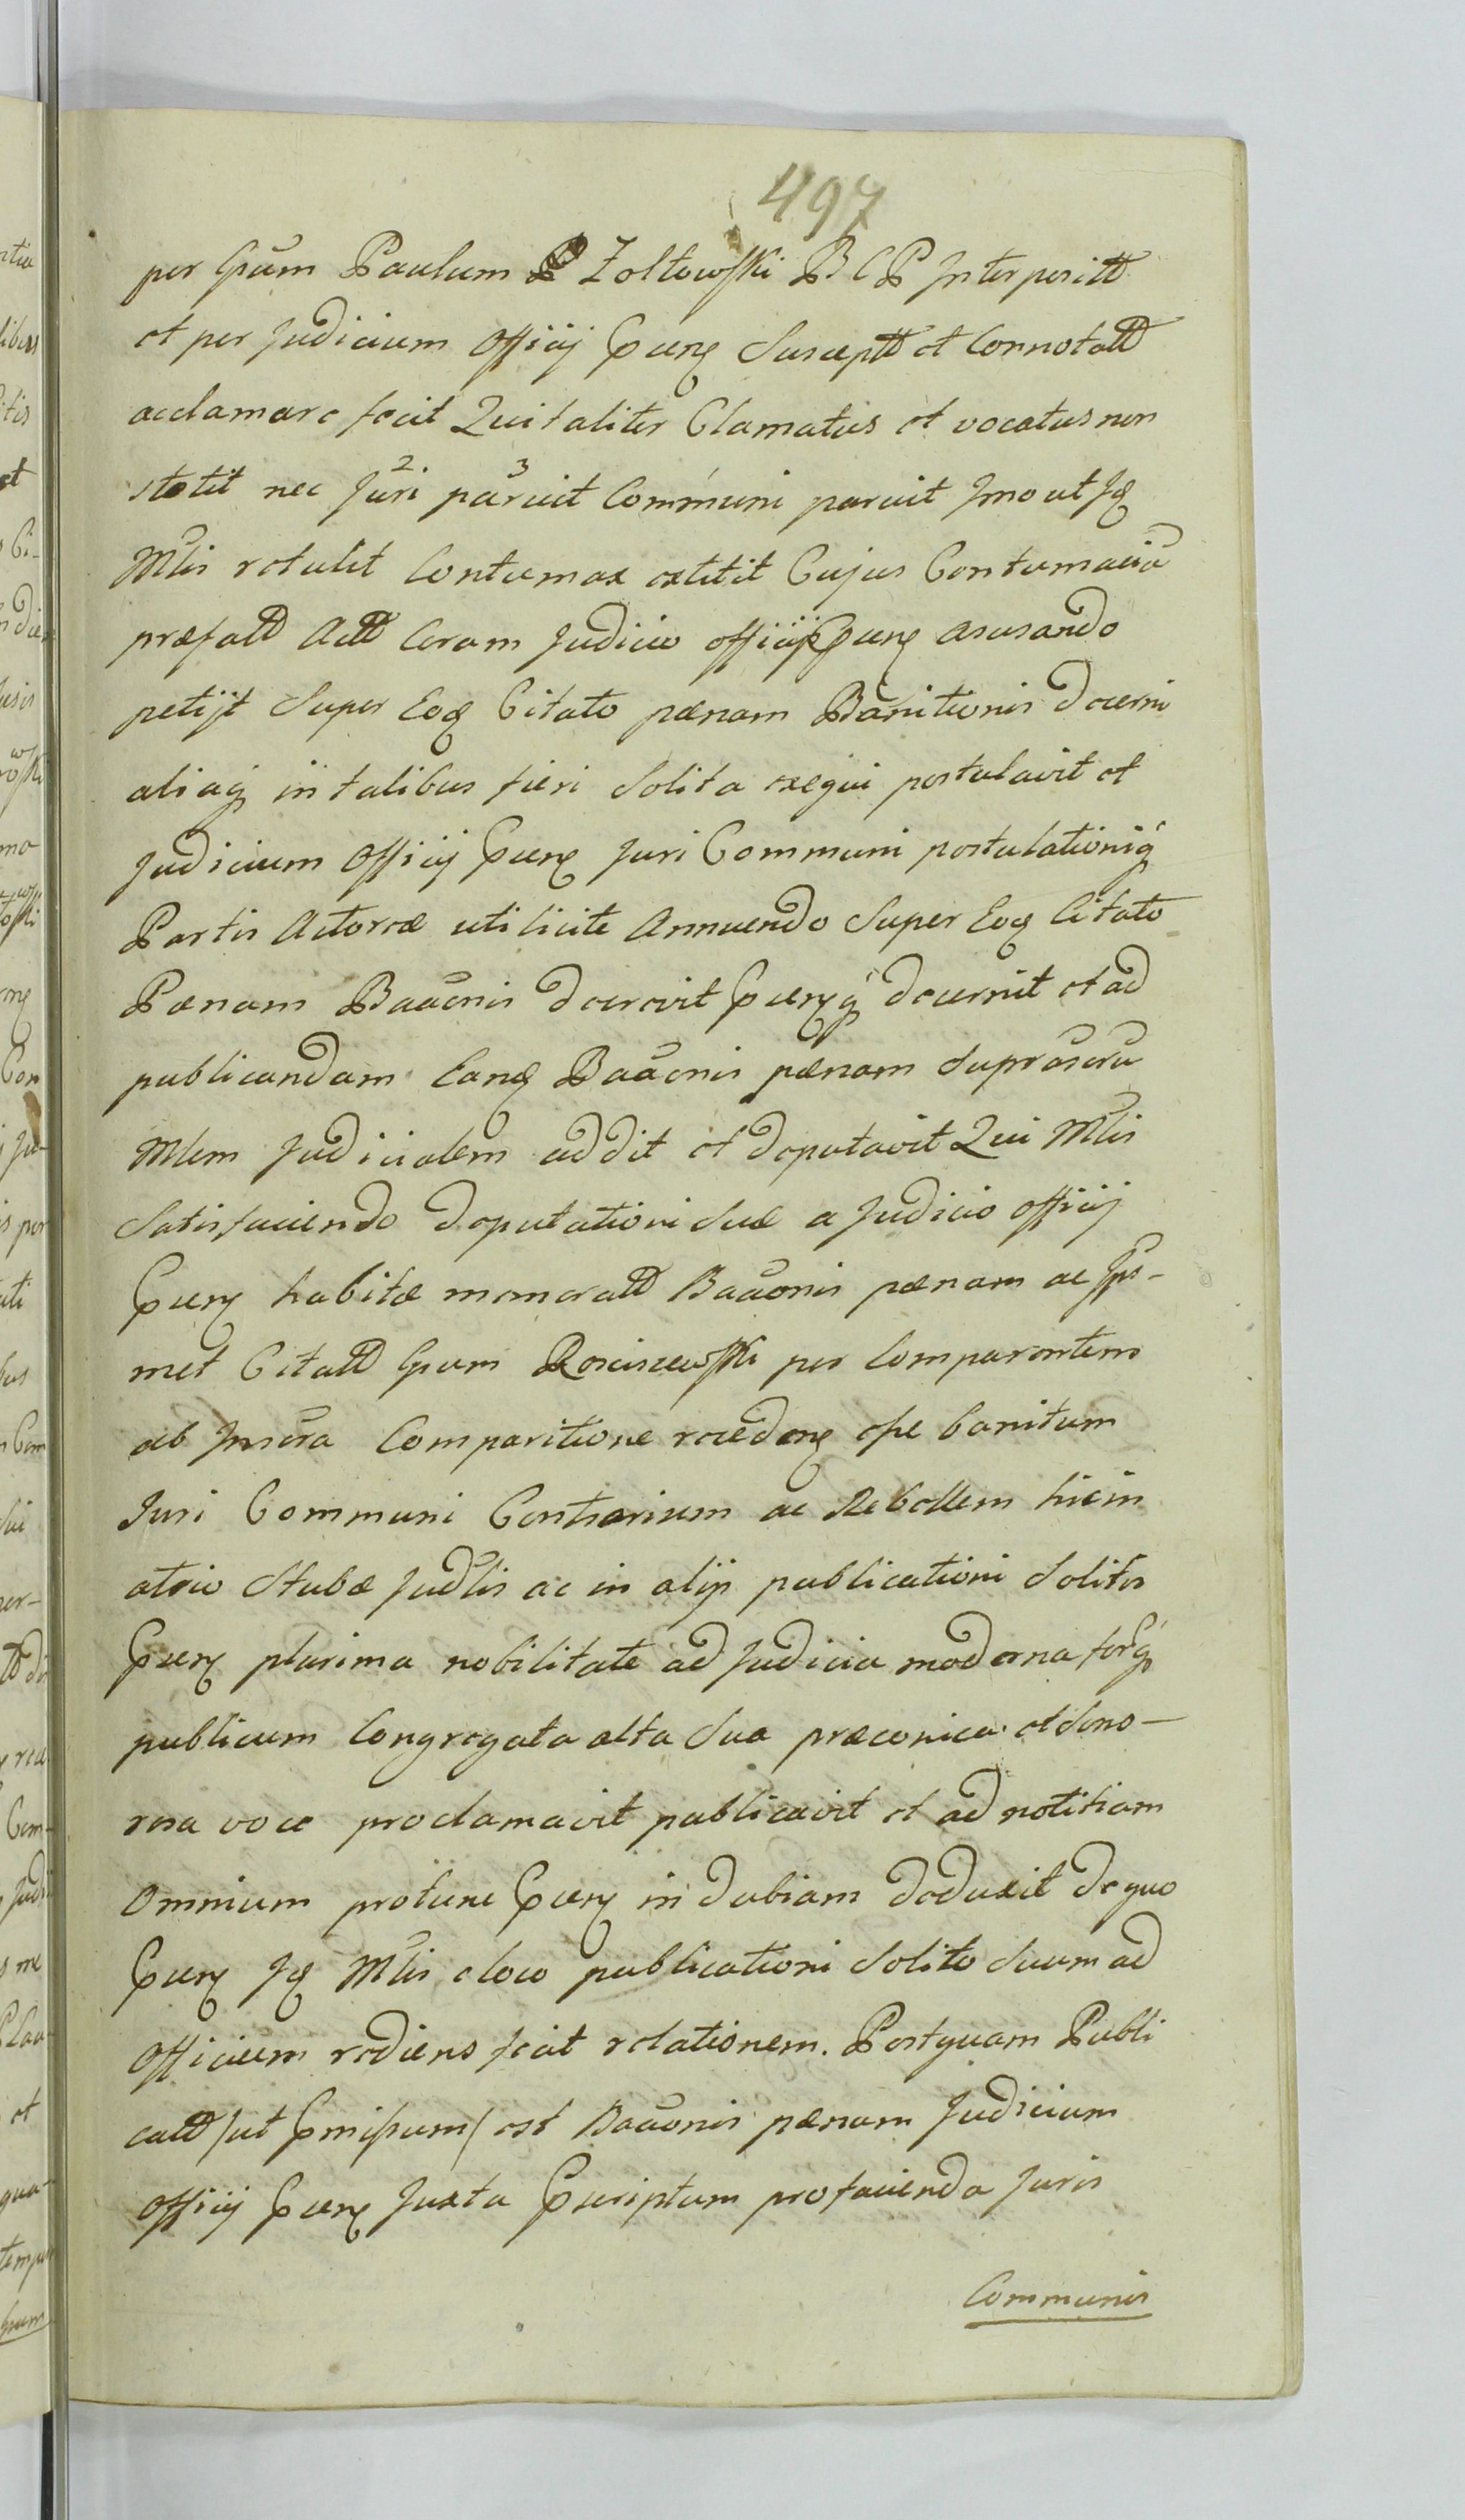 497
per Gnum Paulum Zołtowski B C P Interpositt
et per Judicium Officij Præns Susceptt et Connotatt
acclamare fecit Qui taliter Clamatus et vocatus non
stetit nec Juri paruit Communi paruit Imo ut Id
Mlis retulit Contumax extitit Cujus Contumacia
præfatt Actt Coram Judicio officij Præns acusando
petijt Super Eod Citato pænam Banitionis decerni
aliaq in talibus fieri Solita exequi postulavit et
Judicium Officij Præns Juri Communi postulationiq
Partis Actoreæ utilicite Annuendo Super Eod Citato
Pænam Baãonis decrevit Prænsq decernit et ad
publicandam Eand Baãonis pænam Suprascrũ
Mlem Judicialem addit et deputavit Qui Mlis
Satisfaciendo deputationi Suæ a Judicio officij
Præns habitæ memoratt Baãonis pænam ac Ips-
met Citatt Gnum Rosciszewski per Comparentem
ab Inscra Comparitione recedens esse banitum
Juri Communi Contrarium ac Rebellem hic in
atrio Stubæ Judlis ac in alijs publicationi Solitis
Præns plurima nobilitate ad Judicia moderna forq
publicum Congregata alta Sua præconica et Sono-
rosa voce proclamavit publicavit et ad notitiam
Omnium protunc Præns indubiam deduxit de quo
Præns Id Mlis e loco publicationi Solito Suum ad
Officium rediens fecit relationem. Postquam Publi
catt /ut Præmissum/ est Baãonis pænam Judicium
Officij Præns Juxta Præscriptum profacienda Juris
Communis